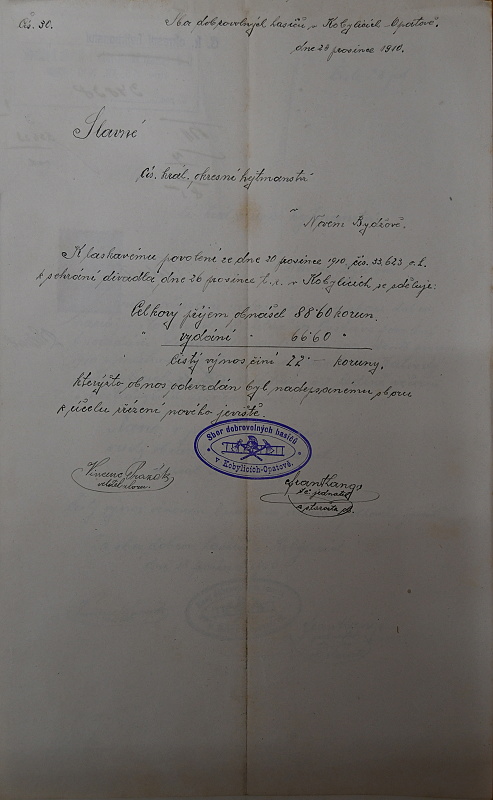 Čís. 30.
Sbor dobrovolných hasičů v Kobylicích-Opatově.
dne 28 prosince 1910.
Slavné
cís. král. okresní hejtmanství
v Novém Bydžově.
K laskavému povolení ze dne 20 prosince 1910, čís. 33,623 e.h.
k sehrání divadla dne 26 prosince t.r. v Kobylicích, se sděluje:
Celkový příjem obnášel 88·60 korun.
" vydání " 66·60 "
čistý výnos činí 22·— koruny,
kterýžto obnos odevzdán byl nadepsanému sboru
k účelu zřízení nového jeviště.
Sbor dobrovolných hasičů
v Kobylicích-Opatově.
Vincenc
velitel sboru.
Fran
t.č. jednatel
a starosta ob.